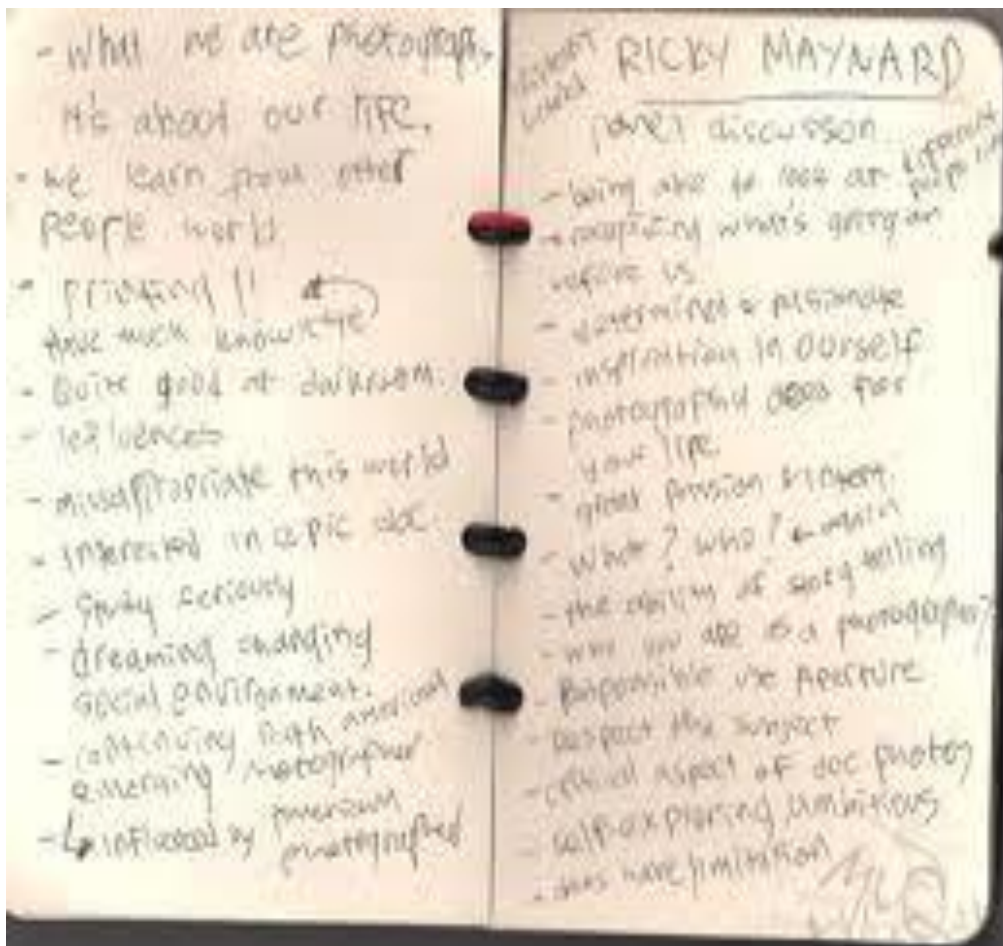 - What we are photograph.
it's about our life.
- we learn from other
people world
- printing !!
have much knowledge
- Quite good at darkroom.
- influences
- missappropriate this world
- interested in epic doc.
- study seriously
- dreaming changing
social environment.
- continuing with american
emerging photographer
- influced by american
photographed
RICKY MAYNARD
panel discusson
- being able to look at
- what's going on
before us
- determined & passionate
- inspiration in ourself
- photography does for
your life
- great passion &
- What? who?
- the ability of story telling
- who you are as a photographer?
- Responsible use Aperture
- Respect the subject
- critical aspect of doc photog
- self-exploring, ambitious
- does have limitation